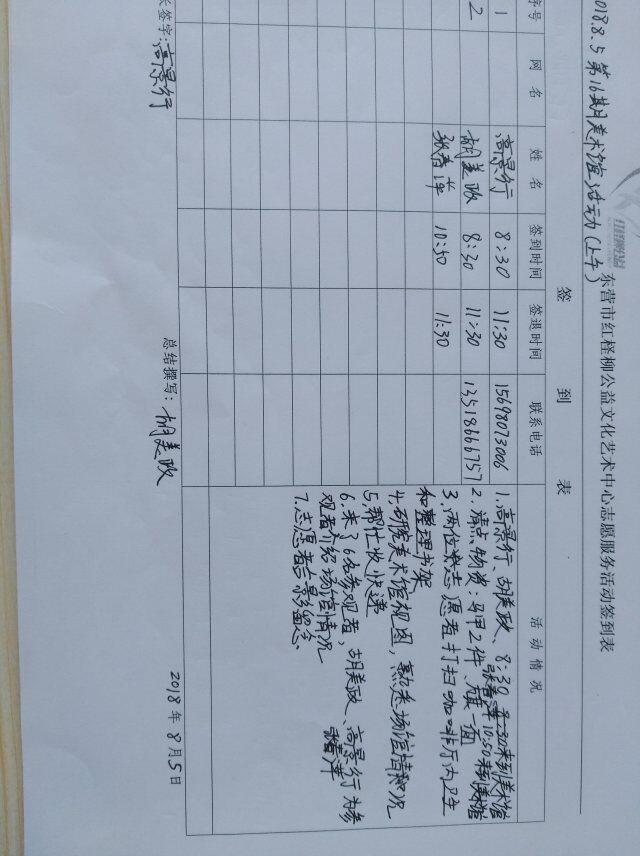 东营市红柽柳公益文化艺术中心志愿服务活动签到表
2018.8.5 第16期美术馆活动(上午)
签 到 表
序号 网名 姓名 签到时间 签退时间 联系电话 活动情况
1 高景行 8:30 11:30 15698073006
2 胡美政 8:30 11:30 13518666757
张春萍 10:50 11:30
1.高景行、胡美政、8:30 来到美术馆
张春萍10:50来到美术馆
2.清点物资:马甲2件、旗一面
3.两位志愿者打扫咖啡厅内卫生
和整理书架
4.研读美术馆视图,熟悉场馆情况
5.帮忙收快递
6.来了6名参观者,胡美政、高景行为参
张春萍
观者介绍场馆情况
7.志愿者合影留念.
长签字:高景行 总结撰写:胡美政 2018年8月5日